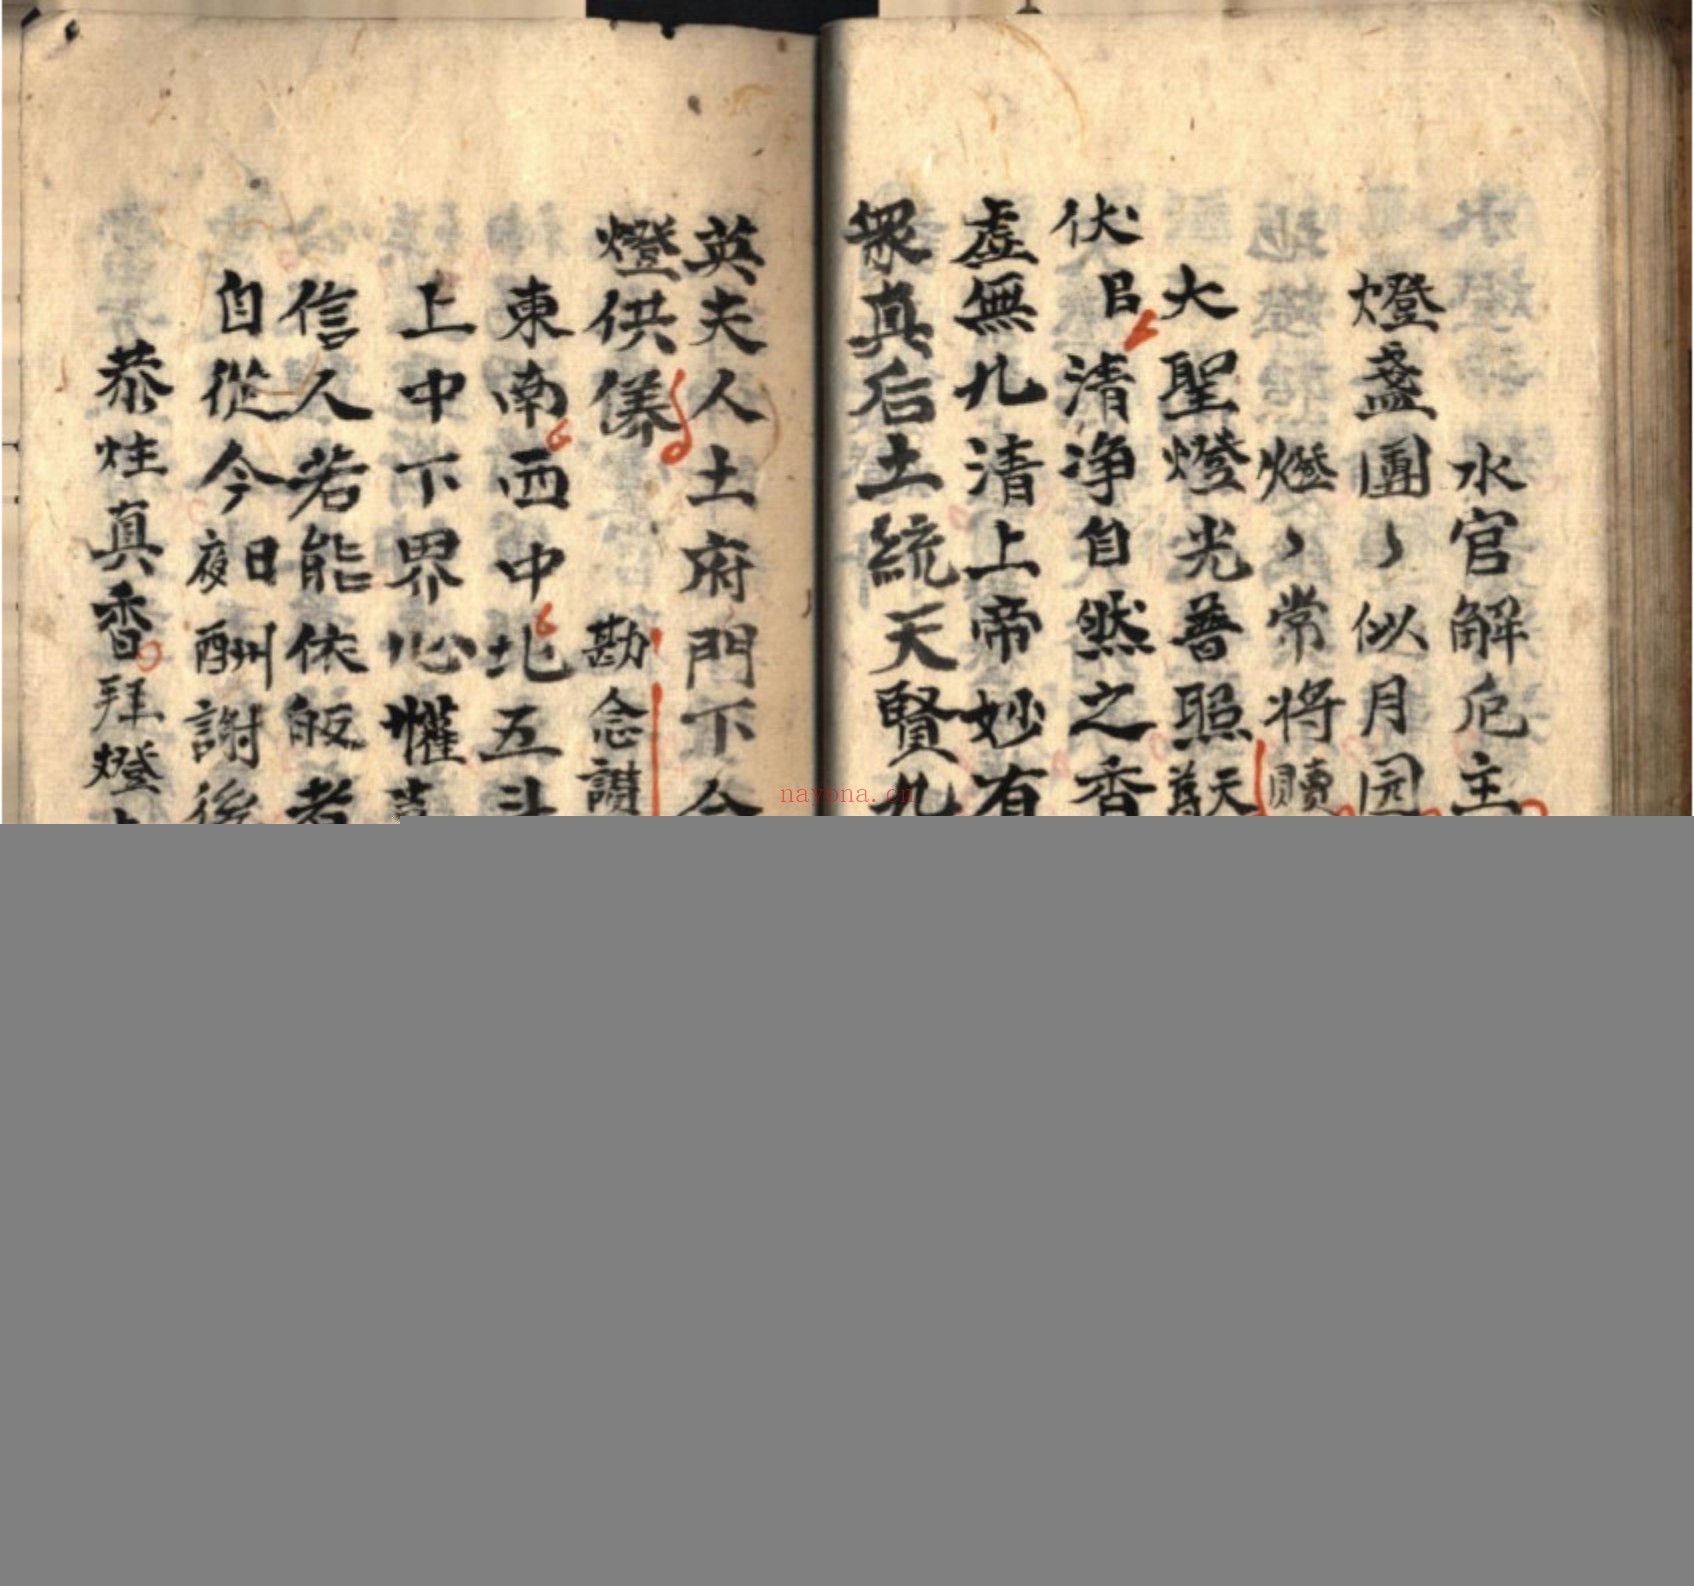 水官解厄主
燈盞團〻似月园
燈〻常将賜
大聖燈光普照天尊
伏㠯清净自然之香
虚無九清上帝妙有
眾真后土統天賢九
英夫人土府門下合
燈供儀 勘念讃
東南西中北五斗
上中下界心懽喜
信人若能依皈者
自從今日夜酬謝後
恭炷真香拜燈
nayona.cn